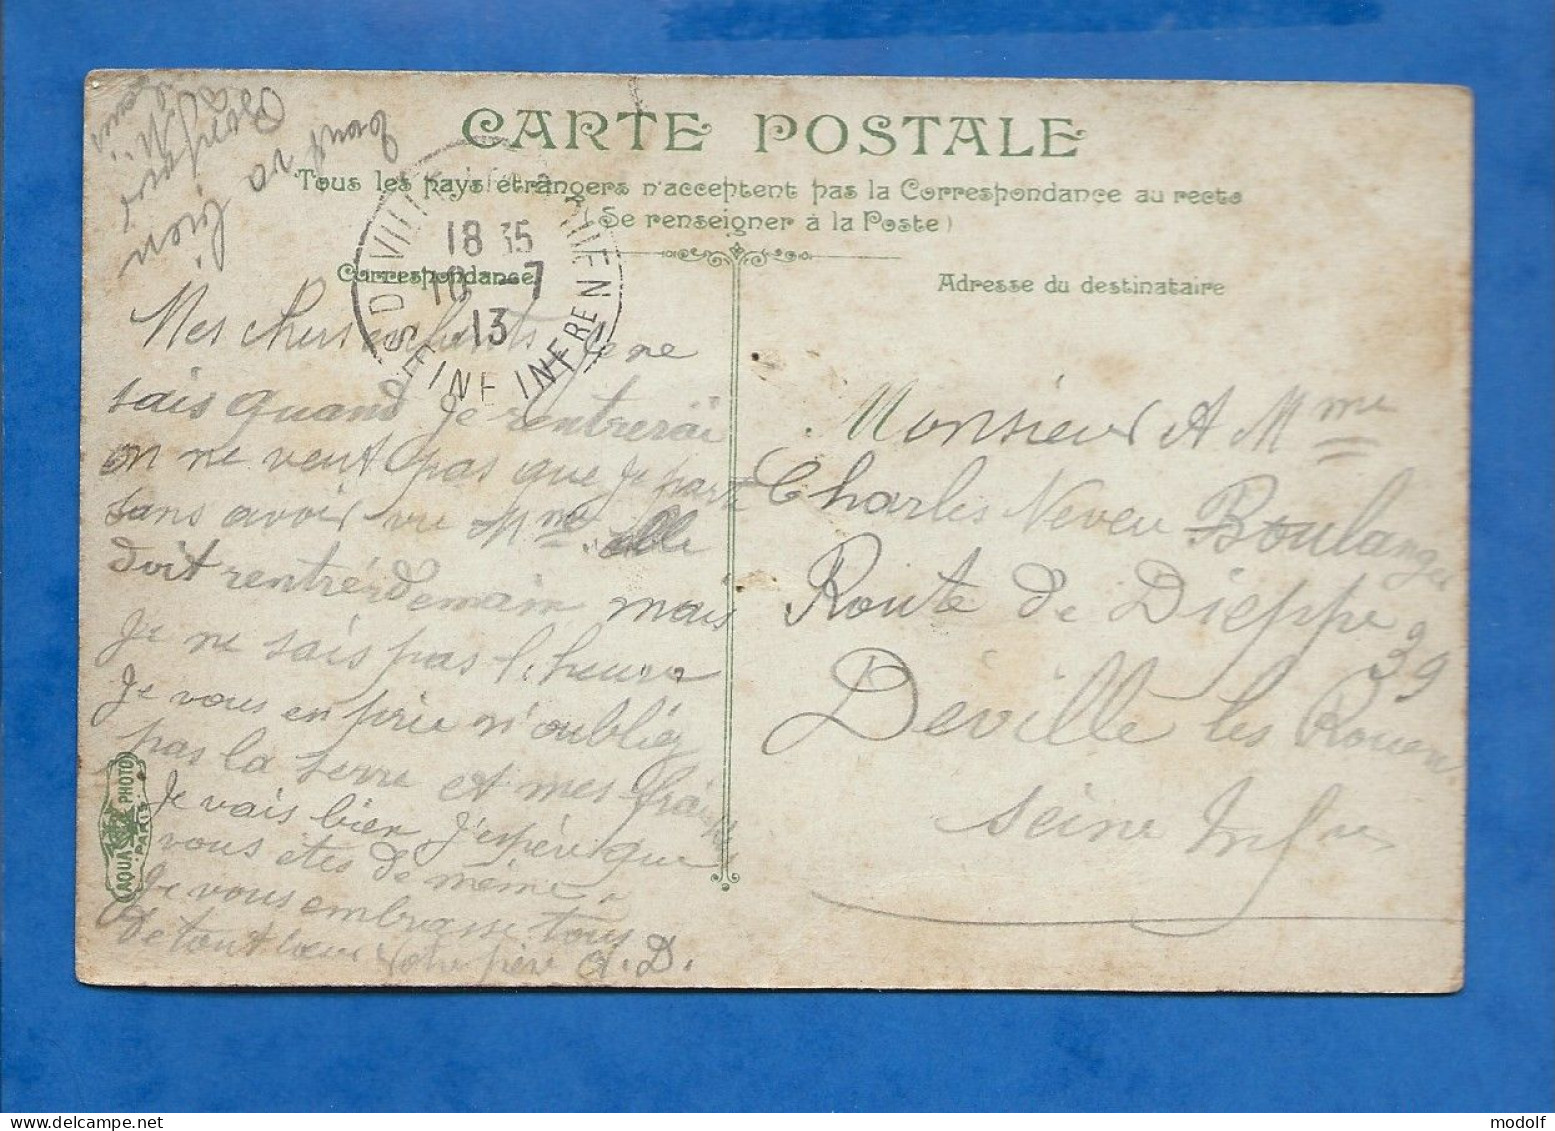 CARTE POSTALE
Tous les pays étrangers n'acceptent pas la Correspondance au recto
(Se renseigner à la Poste)
Correspondance
Adresse du destinataire
tout va
bien
Bonjour
à Mr
18 35
10 - 7
13
SEINE INFRE
Mes chers enfants Je ne
sais quand je rentrerai
on ne veut pas que je parte
sans avoir vu Mme elle
doit rentrér demain mais
Je ne sais pas l'heure
Je vous en prie n'oubliéz
pas la serre et mes
Je vais bien J'espère que
vous êtes de même
Je vous embrasse tous
de tout cœur Votre père A. D.
Monsieur et Mme
Charles Neveu Boulanger
Route de Dieppe 39
Déville les Rouen
Seine Infre
AQUA PHOTO
PARIS
modolf